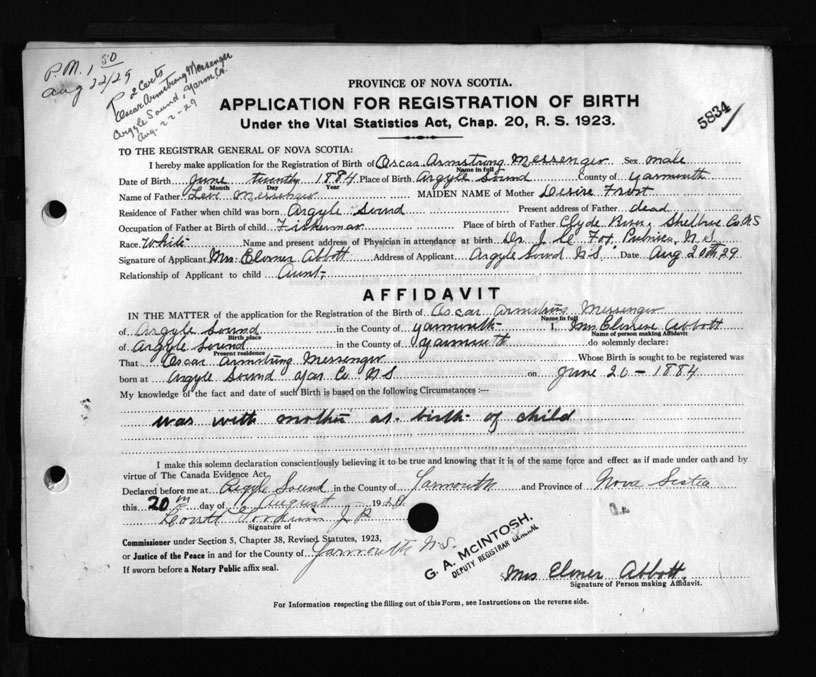 P.M. 1 50
Aug 22/29
R 2 Certs
Oscar Armstrong Messenger
Argyle Sound, Yarm Co.
Aug-22-29
5834
PROVINCE OF NOVA SCOTIA.
APPLICATION FOR REGISTRATION OF BIRTH
Under the Vital Statistics Act, Chap. 20, R. S. 1923.
TO THE REGISTRAR GENERAL OF NOVA SCOTIA:
I hereby make application for the Registration of Birth of Oscar Armstrong Messenger Sex male
Name in full
Date of Birth June twenty 1884 Place of Birth Argyle Sound County of Yarmouth
Month Day Year
Name of Father Levi Messenger MAIDEN NAME of Mother Desire Frost
Residence of Father when child was born Argyle Sound Present address of Father dead
Occupation of Father at Birth of child Fisherman Place of birth of Father Clyde River, Shelburne Co. N S
Race White Name and present address of Physician in attendance at birth Dr. J. C Fox, Pubnico, N. S.
Signature of Applicant Mrs. Elmer Abbott Address of Applicant Argyle Sound N S. Date Aug 20th, 29
Relationship of Applicant to child Aunt
AFFIDAVIT
IN THE MATTER of the application for the Registration of the Birth of Oscar Armstrong Messenger
Name in full
of Argyle Sound in the County of Yarmouth I, Mrs Abbott
Birth place Name of person making Affidavit
of Argyle Sound in the County of Yarmouth do solemnly declare:
Present residence
That Oscar Armstrong Messenger Whose Birth is sought to be registered was
born at Argyle Sound Yar Co N S on June 20 - 1884
My knowledge of the fact and date of such Birth is based on the following Circumstances :—
was with mother at birth of child
I make this solemn declaration conscientiously believing it to be true and knowing that it is of the same force and effect as if made under oath and by
virtue of The Canada Evidence Act.
Declared before me at Argyle Sound in the County of Yarmouth and Province of Nova Scotia
this 20th day of August 1929
J P
Signature of
Commissioner under Section 5, Chapter 38, Revised Statutes, 1923,
or Justice of the Peace in and for the County of Yarmouth N. S.
If sworn before a Notary Public affix seal.
G. A. McINTOSH,
DEPUTY REGISTRAR GENERAL
Mrs Elmer Abbott.
Signature of Person making Affidavit.
For Information respecting the filling out of this Form, see Instructions on the reverse side.